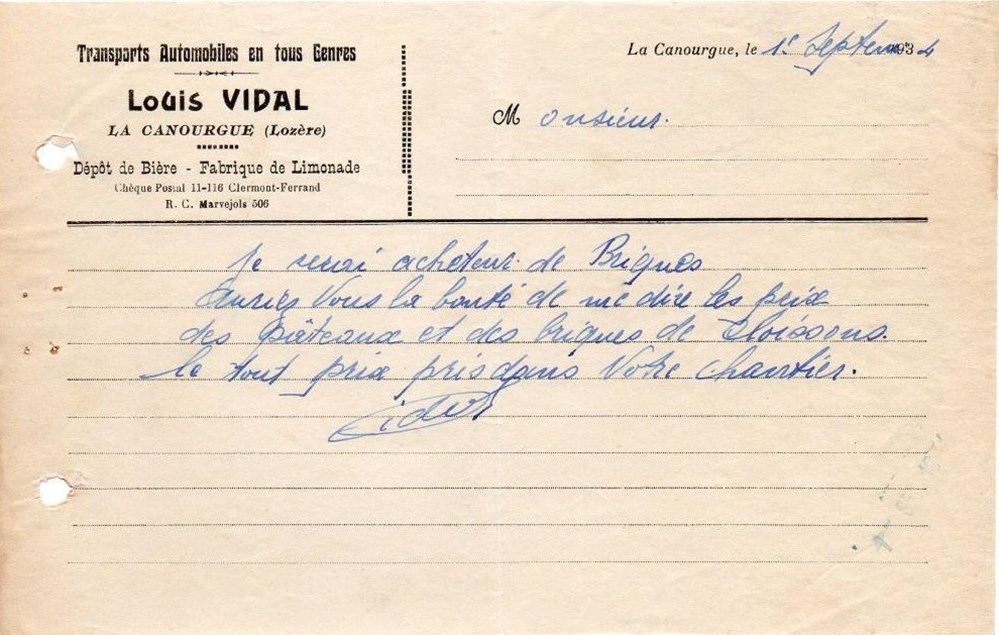 Transports Automobiles en tous Genres
Louis VIDAL
LA CANOURGUE (Lozère)
Dépôt de Bière - Fabrique de Limonade
Chèque Postal 11-116 Clermont-Ferrand
R. C. Marvejols 506
La Canourgue, le 1er Septembre 1934
Monsieur.
Je serai acheteur de Briques
Auriez Vous la bonté de me dire les prix
des Plâteaux et des briques de Cloisons.
le tout prix pris dans Votre Chantier.
Vidal